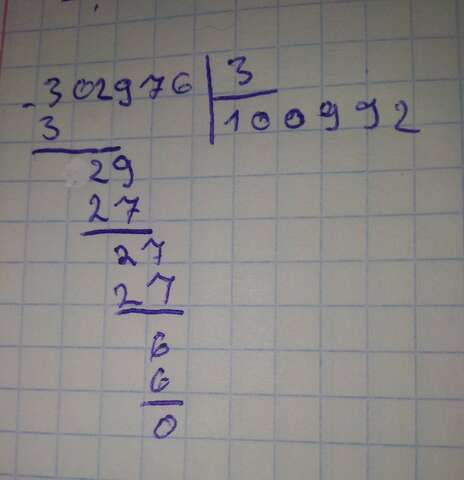 -302976 3
3 100992
29
27
27
27
6
6
0